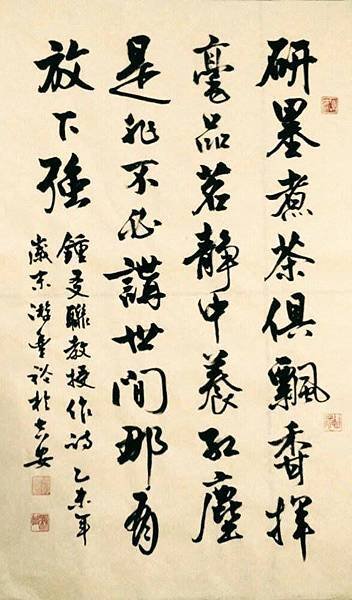 研墨煮茶俱飄香揮
毫品茗靜中養紅塵
是非不必講世間那有
放下強
鍾聯教授作詩 乙未年
歲末游裕於吉安